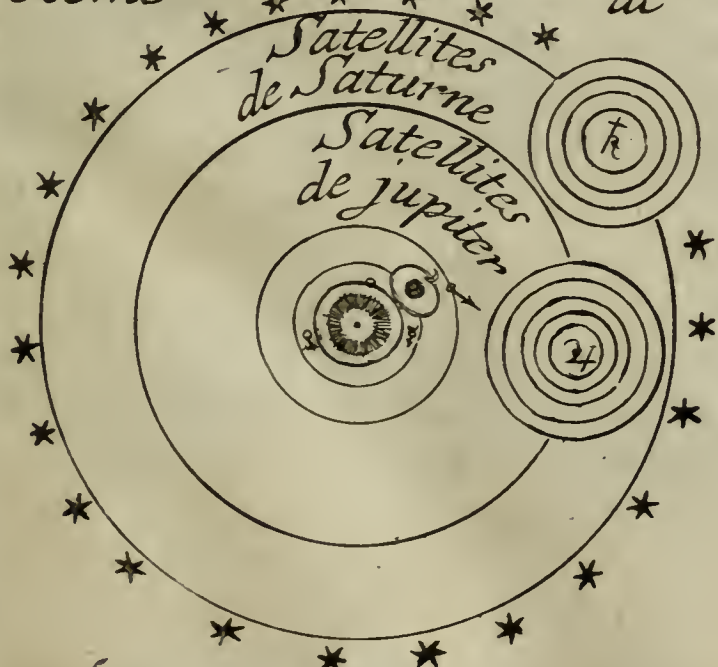 Satellites
de Saturne
Satellites
de jupiter
♄
♃